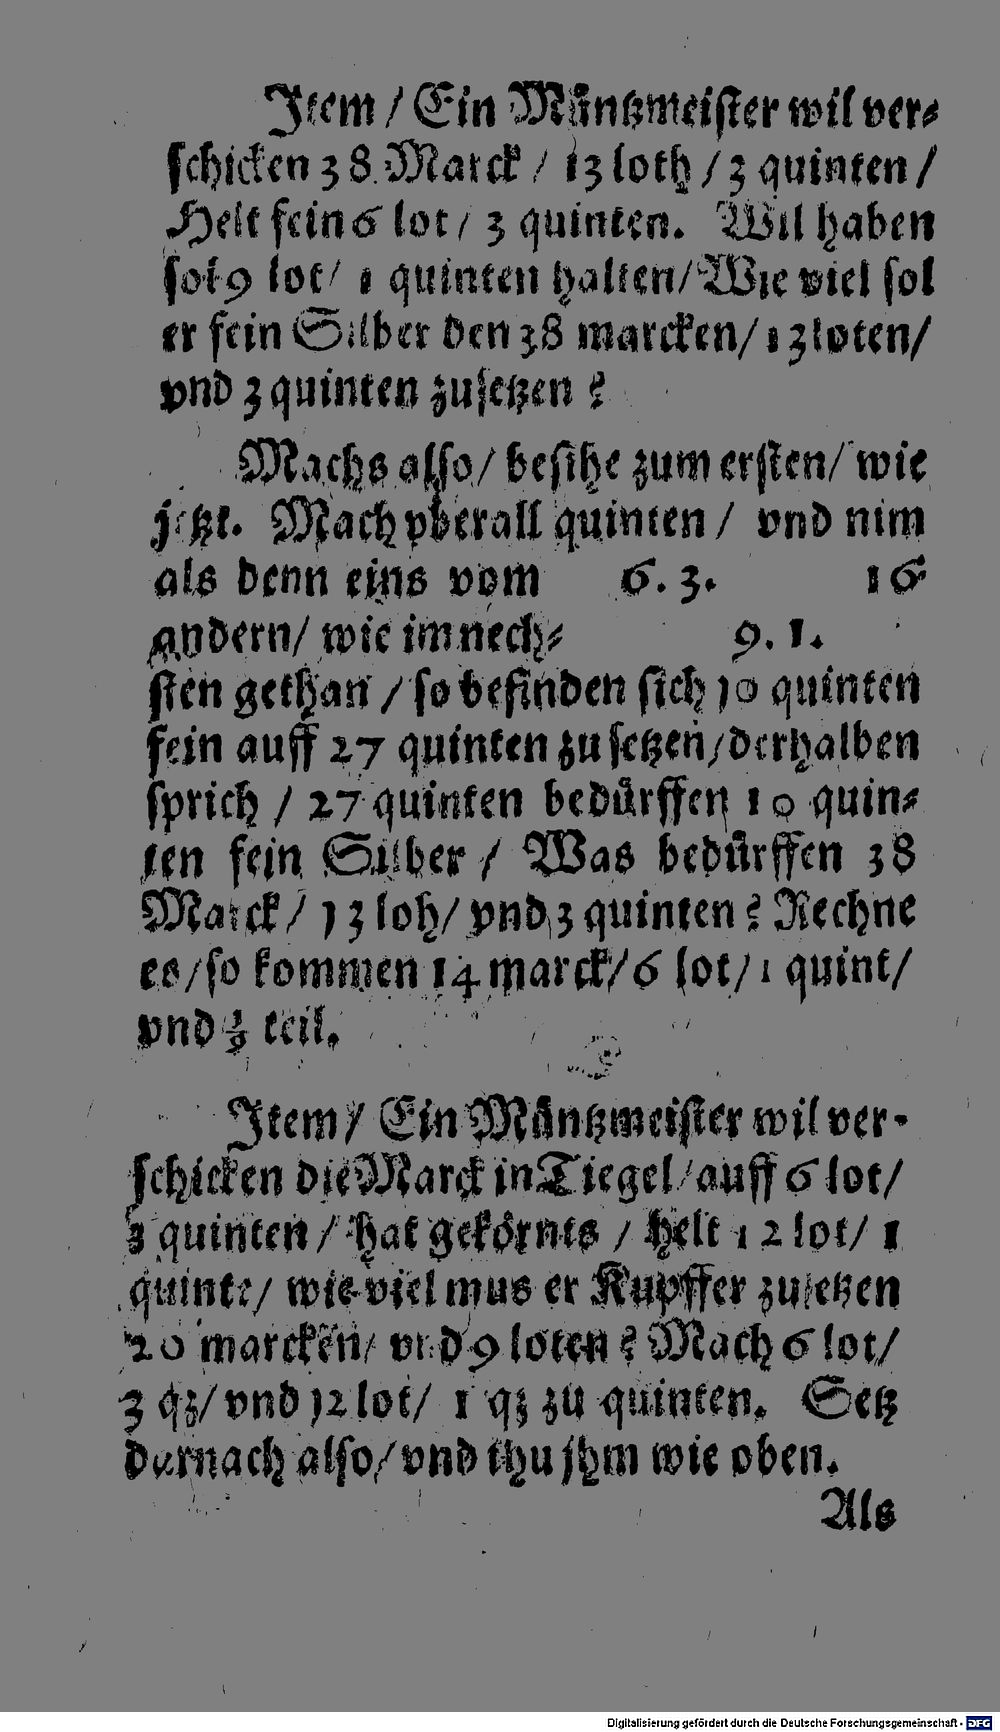 Item / Ein Müntzmeister wil ver⸗
schicken 38 Marck / 13 loth / 3 quinten /
Helt fein 6 lot / 3 quinten. Wil haben
sol 9 lot / 1 quinten halten / Wie viel sol
er fein Silber den 38 marcken / 13 loten /
vnd 3 quinten zusetzen?
Machs also / besihe zum ersten / wie
jetzt. Mach vberall quinten / vnd nim
als denn eins vom 6. 3. 16
andern / wie im nech⸗ 9. 1.
sten gethan / so befinden sich 10 quinten
fein auff 27 quinten zu setzen / derhalben
sprich / 27 quinten bedürffen 10 quin⸗
ten fein Silber / Was bedürffen 38
Marck / 13 loh / vnd 3 quinten? Rechne
es / so kommen 14 marck / 6 lot / 1 quint /
vnd teil.
Item / Ein Müntzmeister wil ver-
schicken die Marck in Tiegel / auff 6 lot /
3 quinten / hat gekörnts / helt 12 lot / 1
quinte / wie viel mus er Kupffer zusetzen
20 marcken / vnd 9 loten? Mach 6 lot /
3 qz / vnd 12 lot / 1 qz zu quinten. Setz
darnach also / vnd thu jhm wie oben.
Als
Digitalisierung gefördert durch die Deutsche Forschungsgemeinschaft - DFG